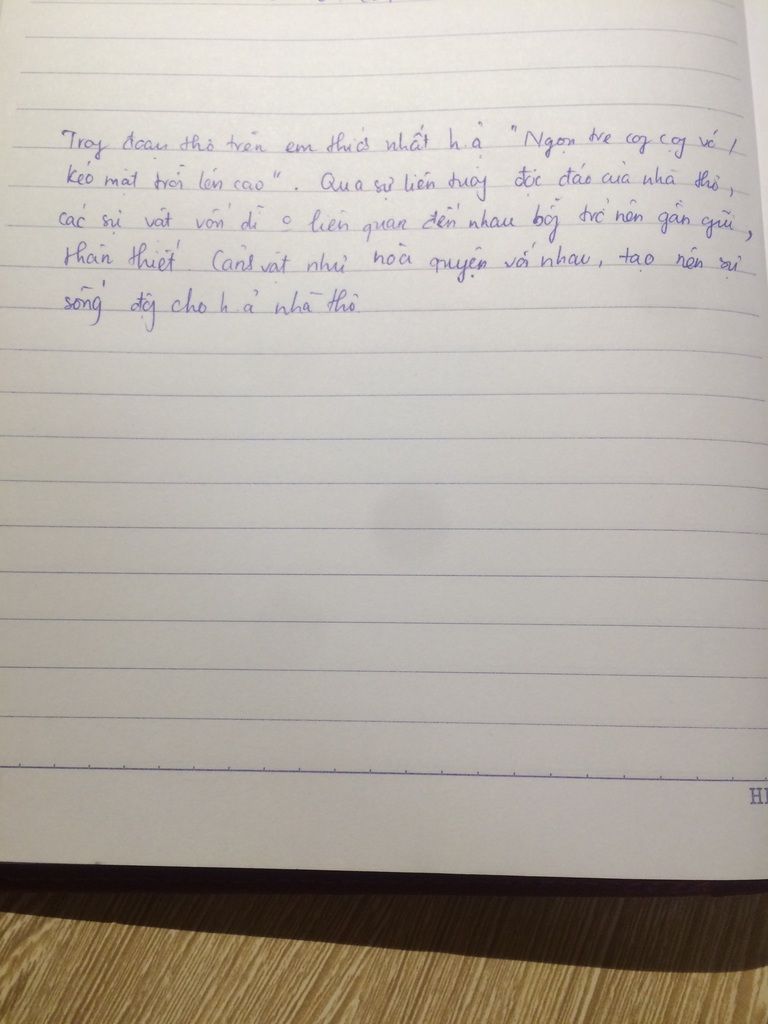 Trog đoạn thơ trên em thích nhất h.ả "Ngọn tre cog cog vó /
kéo mặt trời lên cao". Qua sự liên tưởng độc đáo của nhà thơ,
các sự vật vốn dĩ o liên quan đến nhau bỗg trở nên gần gũi,
thân thiết. Cảnh vật như hoà quyện với nhau, tạo nên sự
sống độg cho h.ả nhà thơ
HI